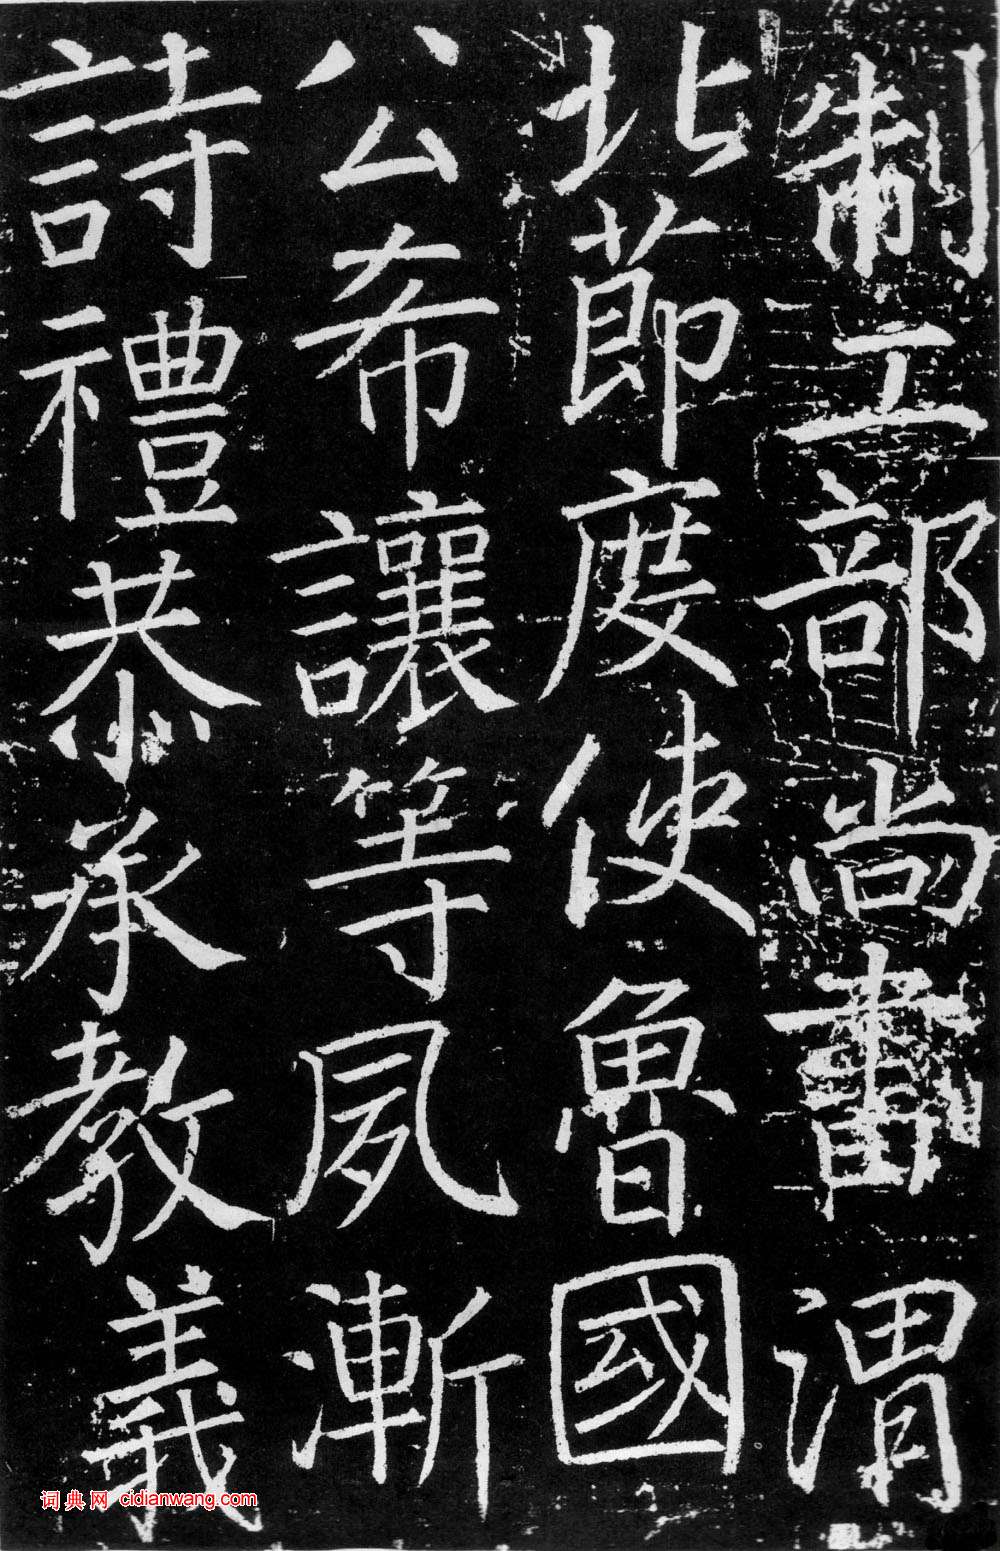 制工部尚書渭
北節度使魯國
公希讓等夙漸
詩禮恭承教義
词典网 cidianwang.com